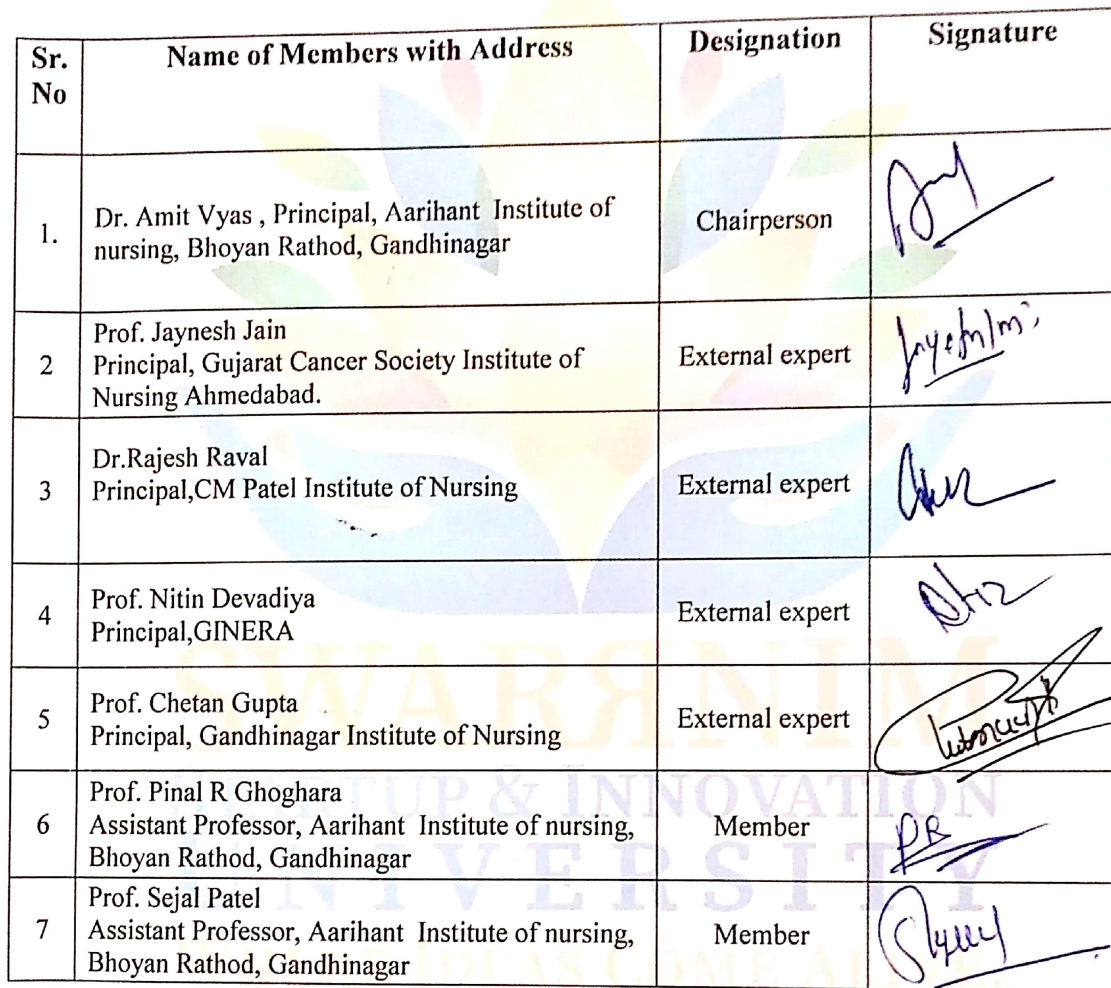 Sr. No
Name of Members with Address
Designation
Signature
1.
Dr. Amit Vyas , Principal, Aarihant Institute of
nursing, Bhoyan Rathod, Gandhinagar
Chairperson
2
Prof. Jaynesh Jain
Principal, Gujarat Cancer Society Institute of
Nursing Ahmedabad.
External expert
3
Dr.Rajesh Raval
Principal,CM Patel Institute of Nursing
External expert
4
Prof. Nitin Devadiya
Principal,GINERA
External expert
5
Prof. Chetan Gupta
Principal, Gandhinagar Institute of Nursing
External expert
6
Prof. Pinal R Ghoghara
Assistant Professor, Aarihant Institute of nursing,
Bhoyan Rathod, Gandhinagar
Member
PR
7
Prof. Sejal Patel
Assistant Professor, Aarihant Institute of nursing,
Bhoyan Rathod, Gandhinagar
Member
SWARЯNIM
STARTUP & INNOVATION
UNIVERSITY